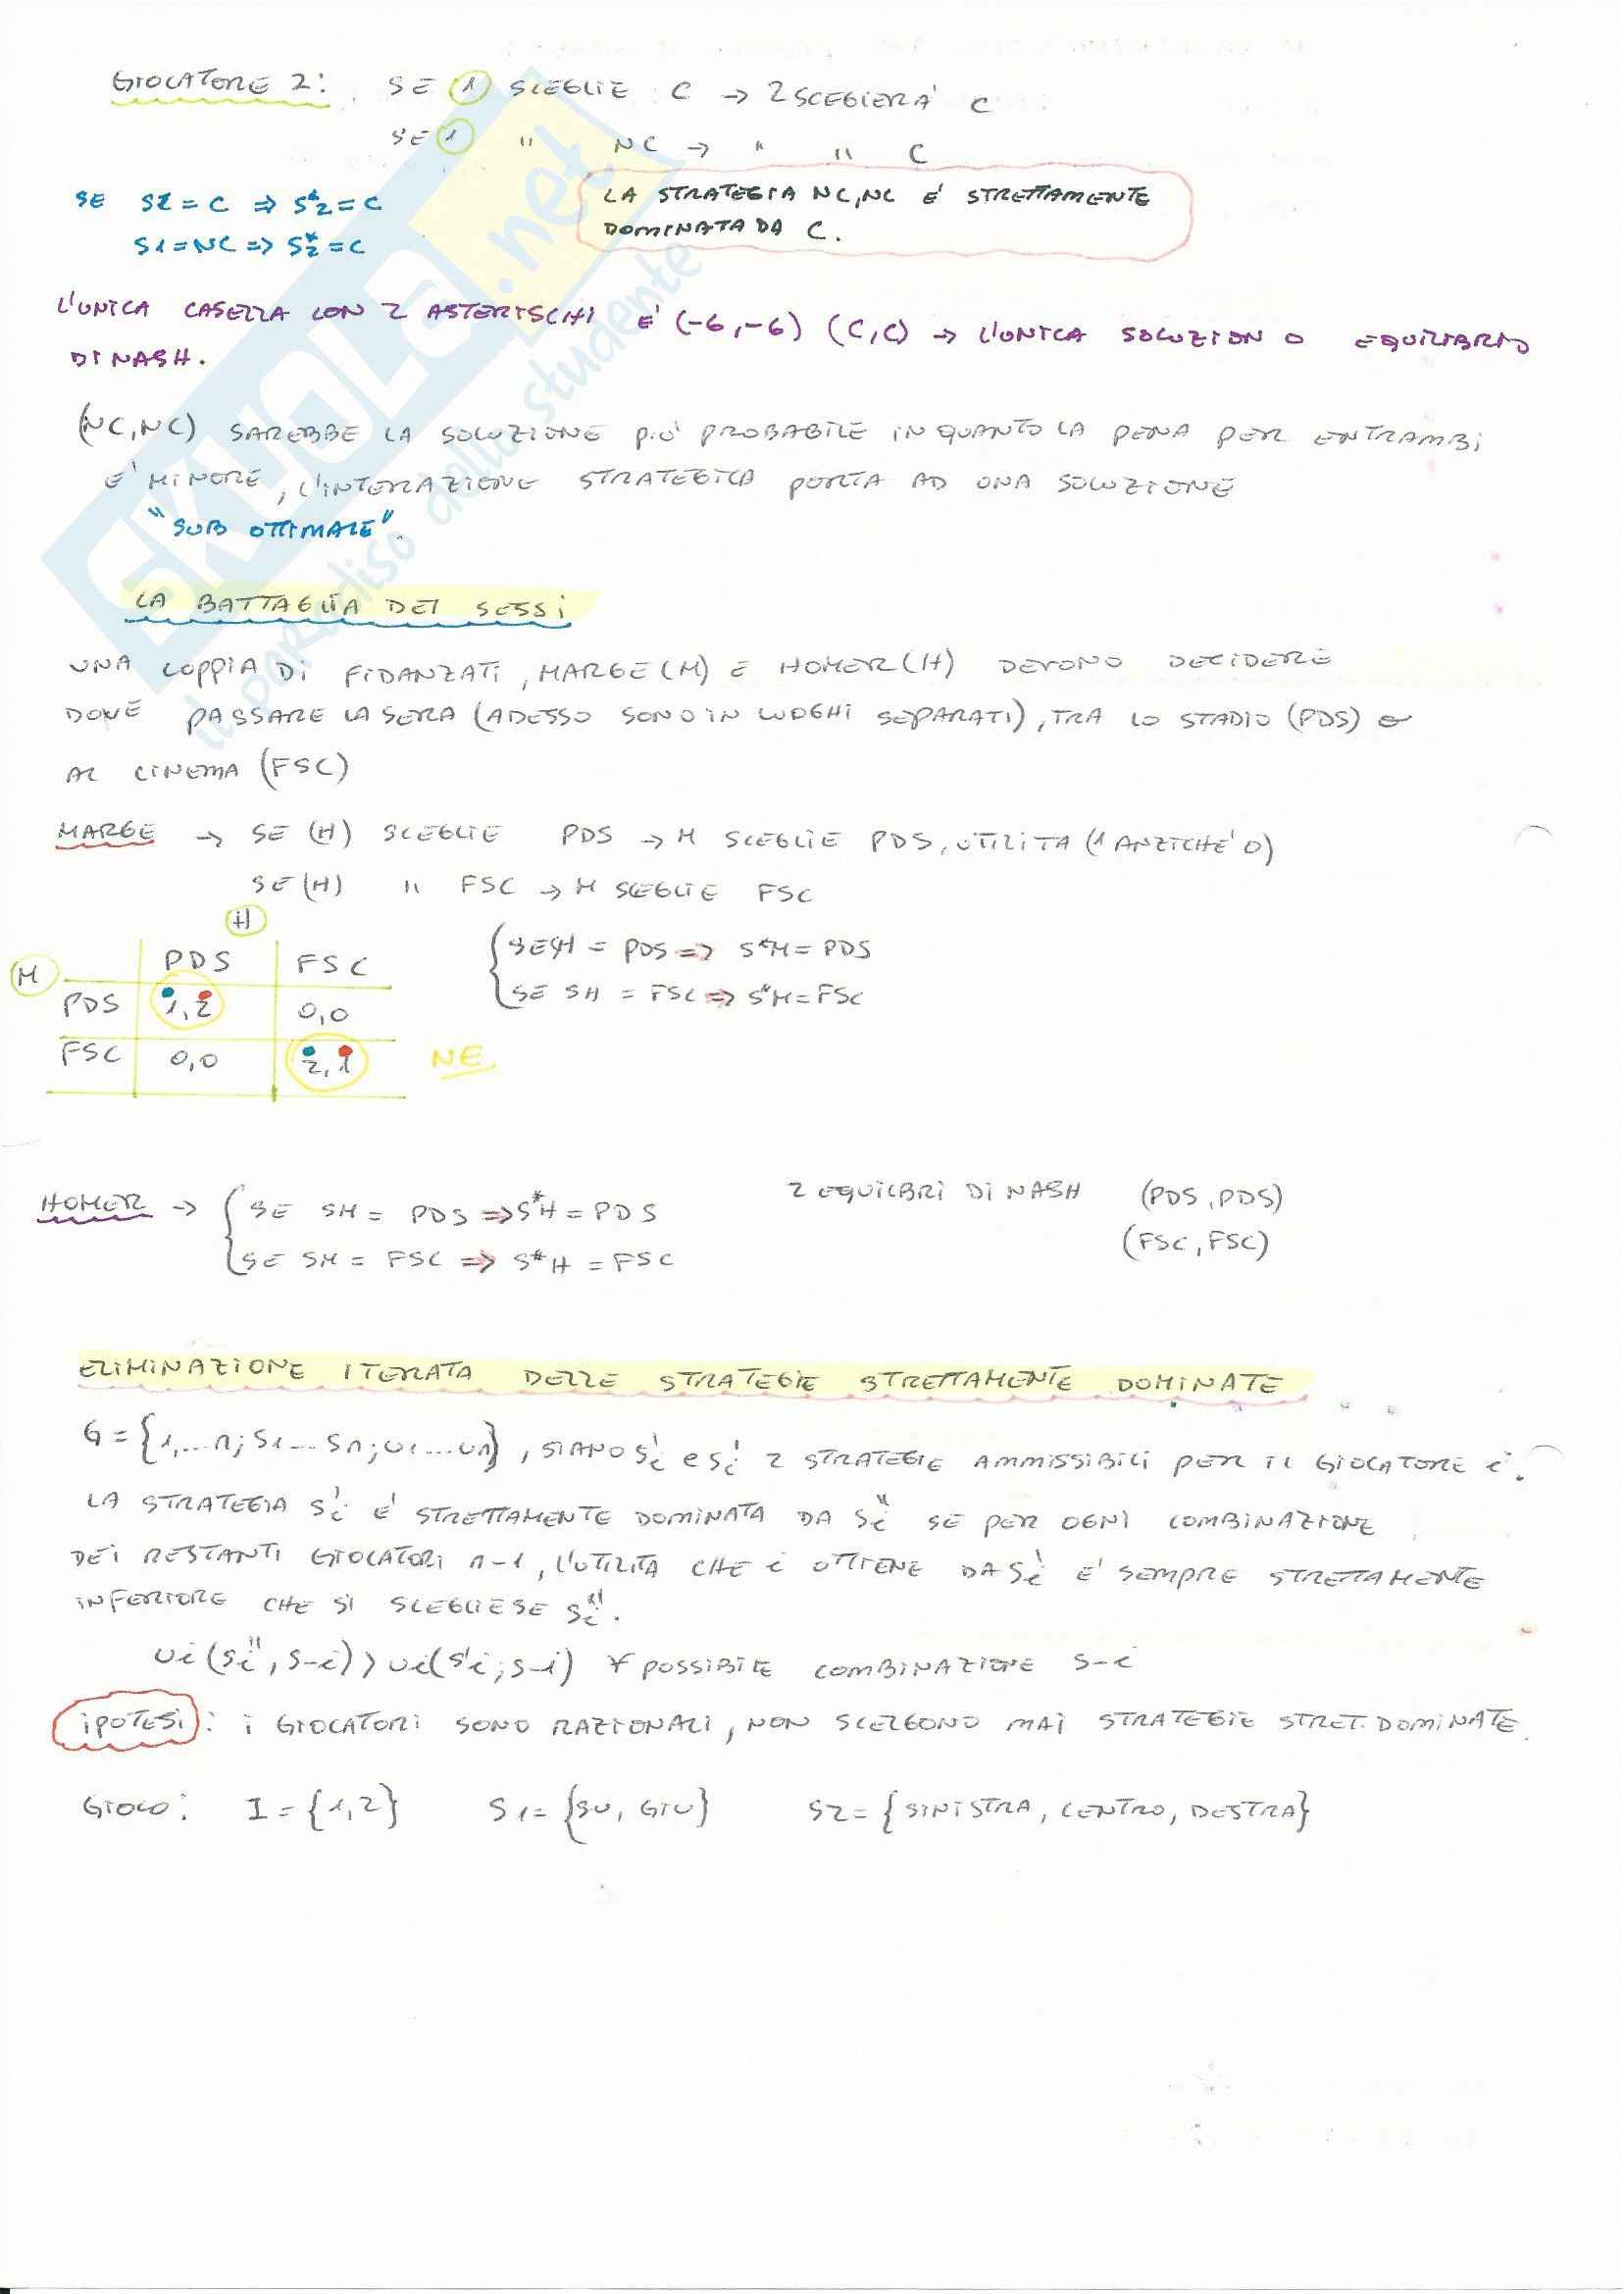 GIOCATORE 2: SE 1 SCEGLIE C → 2 SCEGLIERA' C
SE 1 " NC → " " C
LA STRATEGIA NC,NC E' STRETTAMENTE
DOMINATA DA C.
SE S1 = C ⇒ S*2 = C
S1 = NC => S*2 = C
L'UNICA CASELLA CON 2 ASTERISCHI E' (-6,-6) (C,C) → L'UNICA SOLUZION O EQUILIBRIO
DI NASH.
(NC,NC) SAREBBE LA SOLUZIONE PIU' PROBABILE IN QUANTO LA PENA PER ENTRAMBI
E' MINORE, L'INTERAZIONE STRATEGICA PORTA AD UNA SOLUZIONE
"SUB OTTIMALE".
LA BATTAGLIA DEI SESSI
UNA COPPIA DI FIDANZATI, MARGE (M) E HOMER (H) DEVONO DECIDERE
DOVE PASSARE LA SERA (ADESSO SONO IN LUOGHI SEPARATI), TRA LO STADIO (PDS) O
AL CINEMA (FSC)
MARGE → SE (H) SCEGLIE PDS → M SCEGLIE PDS, UTILITA (1 ANZICHE' 0)
SE (H) " FSC → M SCEGLIE FSC
H
M PDS FSC
PDS 1,2 0,0
FSC 0,0 2,1 NE
{ SE SH = PDS => S*M = PDS
SE SH = FSC => S*M = FSC
HOMER → { SE SM = PDS => S*H = PDS
SE SM = FSC => S*H = FSC
2 EQUILBRI DI NASH (PDS, PDS)
(FSC, FSC)
ELIMINAZIONE ITERATA DELLE STRATEGIE STRETTAMENTE DOMINATE
G = {1,...n; S1...Sn; U1...Un}, SIANO Si' e Si' 2 STRATEGIE AMMISSIBILI PER IL GIOCATORE i.
LA STRATEGIA Si' E' STRETTAMENTE DOMINATA DA Si" SE PER OGNI COMBINAZIONE
DEI RESTANTI GIOCATORI n-1, L'UTILITA CHE i OTTIENE DA Si' E' SEMPRE STRETTAMENTE
INFERIORE CHE SI SCEGLIESE Si".
Ui (Si", S-i) > Ui (S'i; S-i) ∀ POSSIBILE COMBINAZIONE S-i
IPOTESI: I GIOCATORI SONO RAZIONALI, NON SCELGONO MAI STRATEGIE STRET. DOMINATE.
GIOCO: I = {1,2} S1 = {SU, GIU} S2 = {SINISTRA, CENTRO, DESTRA}
SKUOLA.net
il paradiso dello studente